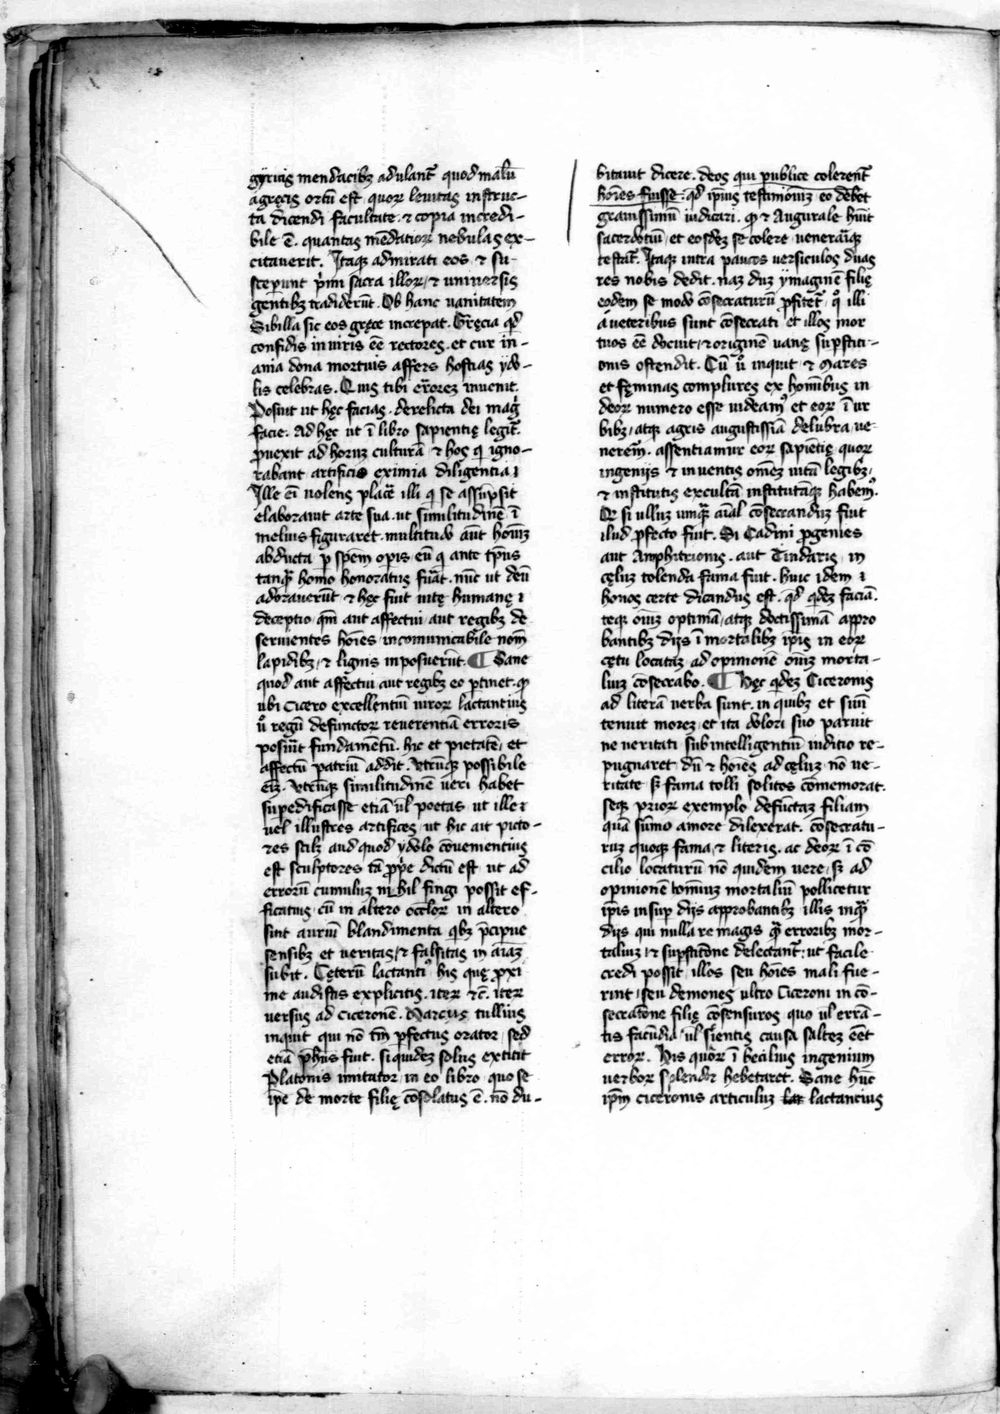 gyricis mendacibꝫ adulant᷑ quod malū
agręcis ortū est. quorꝝ leuitas instruc-
ta dicendi facultate. ⁊ copia incredi-
bile ē. quantas mēdatiorꝝ nebulas ex-
citauerit. Itaqꝫ admirati eos ⁊ su-
scep̄unt p̄im sacra illorꝝ ⁊ uniuersis
gentibꝫ tradider̄t. Ob hanc uanitatem
Sibilla sic eos gręce increpat. Gręcia qd̛
confidis in uiris ēē rectores. et cur in-
ania dona mortuis affers hostias ydo-
lis celebras. Quis tibi er̄orez inuenit.
Posuit ut hęc facias. derelicta dei mag̛
facie. Ad hęc ut ī libro sapientię legit᷑.
ꝓuexit ad horuꝫ culturā ⁊ hos q̛ igno-
rabant artificis eximia diligentia .i.
Ille ei̅ uolens plac̄e illi q̛ se assūpsit
elaborauit arte sua. ut similitudinē ī
melius figuraret. multitudo aūt homi̅ꝫ
abducta ꝑ spēm opis eū q̛ ante tp̄us
tanqꝫ homo honoratus fūat. nūc ut deū
adorauer̄ut ⁊ hęc fuit uitę humanę .i.
deceptio qm̄ aut affectui aut regibꝫ de
seruientes hōies incomunicabile nom̄
lapidibꝫ ⁊ lignis inposuer̄ut. ¶ Sane
quod aut affectui aut regibꝫ eo ꝑtinet. qꝫ
ubi Cicero excellentiū uirorꝝ lactantius
u̅o regū defunctorꝝ reuerentiā erroris
posūit fundamētū. hic et pietatē et
affectū patriū addit. Vtrūqꝫ possibile
eiꝫ. Vtrūqꝫ similitudinē ueri habet
sup̄edificasse etiā ul̄ poetas. ut ille ⁊
uel illustres artifices ut hic ait picto-
res scilꝫ aud quod ydolo conuenientius
est sculptores tā ꝓp̄e dictū est ut ad
errorū cumulū nihil fingi possit ef-
ficatius cū in altero oculorꝝ in altero
sint auriū blandimenta qibꝫ p̄cipue
sensibꝫ et ueritas ⁊ falsitas in aīaꝫ
subit. Cęterū lactantiꝰ his quę ꝓxi
me audistis explicitis. iter ⁊c̄. iter
uersus ad ciceronē. Marcus tullius
inquit qui nō tm̄ perfectus orator sed
etiā ph̄us fuit. siquidez solus extitit
Platonis imitator in eo libro quo se
ip̄e de morte filię cōsolatus ē. nō du-
bitauit dicere. deos qui publice colerent᷑
hōies fuisse. qd̛ ip̄ius testimoniuꝫ eo debet
grauissimū iudicari. qꝫ ⁊ Augurale hūit
sacerdotiū et eosdeꝫ se colere uenerariqꝫ
testat᷑. Itaqꝫ intra paucos uersiculos duas
res nobis dedit. naꝫ duꝫ ymaginē filię
eodem se modo cōsecraturū ꝓfitet᷑ qͦ illi
a ueteribus sunt cōsecrati et illos mor
tuos ēē docuit ⁊ originē uanę sup̄stiti-
onis ostendit. Cū u̅o inquit ⁊ mares
et fęminas complures ex hominibus in
deorꝝ numero esse uideamꝰ et eorꝝ ī ur
bibꝫ atqꝫ agris augustissiā delubra ue-
neremꝰ. assentiamur eorꝝ sapientię quorꝝ
ingeniis ⁊ inuentis om̄eꝫ uitā legibꝫ
⁊ institutis excultā institutāqꝫ habemꝰ.
Qꝫ si ullus umqꝫ aīal cōsecranduꝫ fuit
illud ꝓfecto fuit. Si Cadmi ꝓgenies
aut Amphitrionis. aut Tindaris in
cęluꝫ tolenda fama fuit. huic idem .i.
honos certe dicandus est. qd̛ qideꝫ faciā.
teqꝫ oīuꝫ optimā atqꝫ doctissimā appro
bantibꝫ dijs ī mortalibꝫ ip̄is in eorꝝ
cętu locataꝫ ad opinionē oīuꝫ morta-
liuꝫ cōsecrabo. ¶ Hęc qideꝫ Ciceronis
ad literā uerba sunt. in quibꝫ et suū
tenuit morez et ita dolori suo paruit
ne ueritati sub intelligentiū iuditio re-
pugnaret. dū ⁊ hōies ad cęluꝫ nō ue-
ritate sꝫ fama tolli solitos cōmemorat.
seqꝫ priorꝝ exemplo defūctaꝫ filiam
quā sūmo amore dilexerat. cōsecratu-
ruꝫ quoqꝫ fama ⁊ literis. ac deorꝝ ī cō
cilio locaturū nō quidem uere sꝫ ad
opinionē hominuꝫ mortaliū pollicetur
ip̄is insuꝑ dijs approbantibꝫ illis inqꝫ
dijs qui nulla re magis qꝫ erroribꝫ mor-
taliuꝫ ⁊ sup̄stitōne delectant᷑: ut facile
credi possit illos seu hōies mali fue-
rint seu demones ultro Ciceroni in cō-
secratōne filię cōsensuros quo ul̄ errā-
tis facūdia ul̄ sientis causa salteꝫ ēēt
error. His quorꝝ ī becilius ingenium
uerborꝝ splendor hebetaret. Sane hūc
ip̄m ciceronis articuluꝫ lactancius